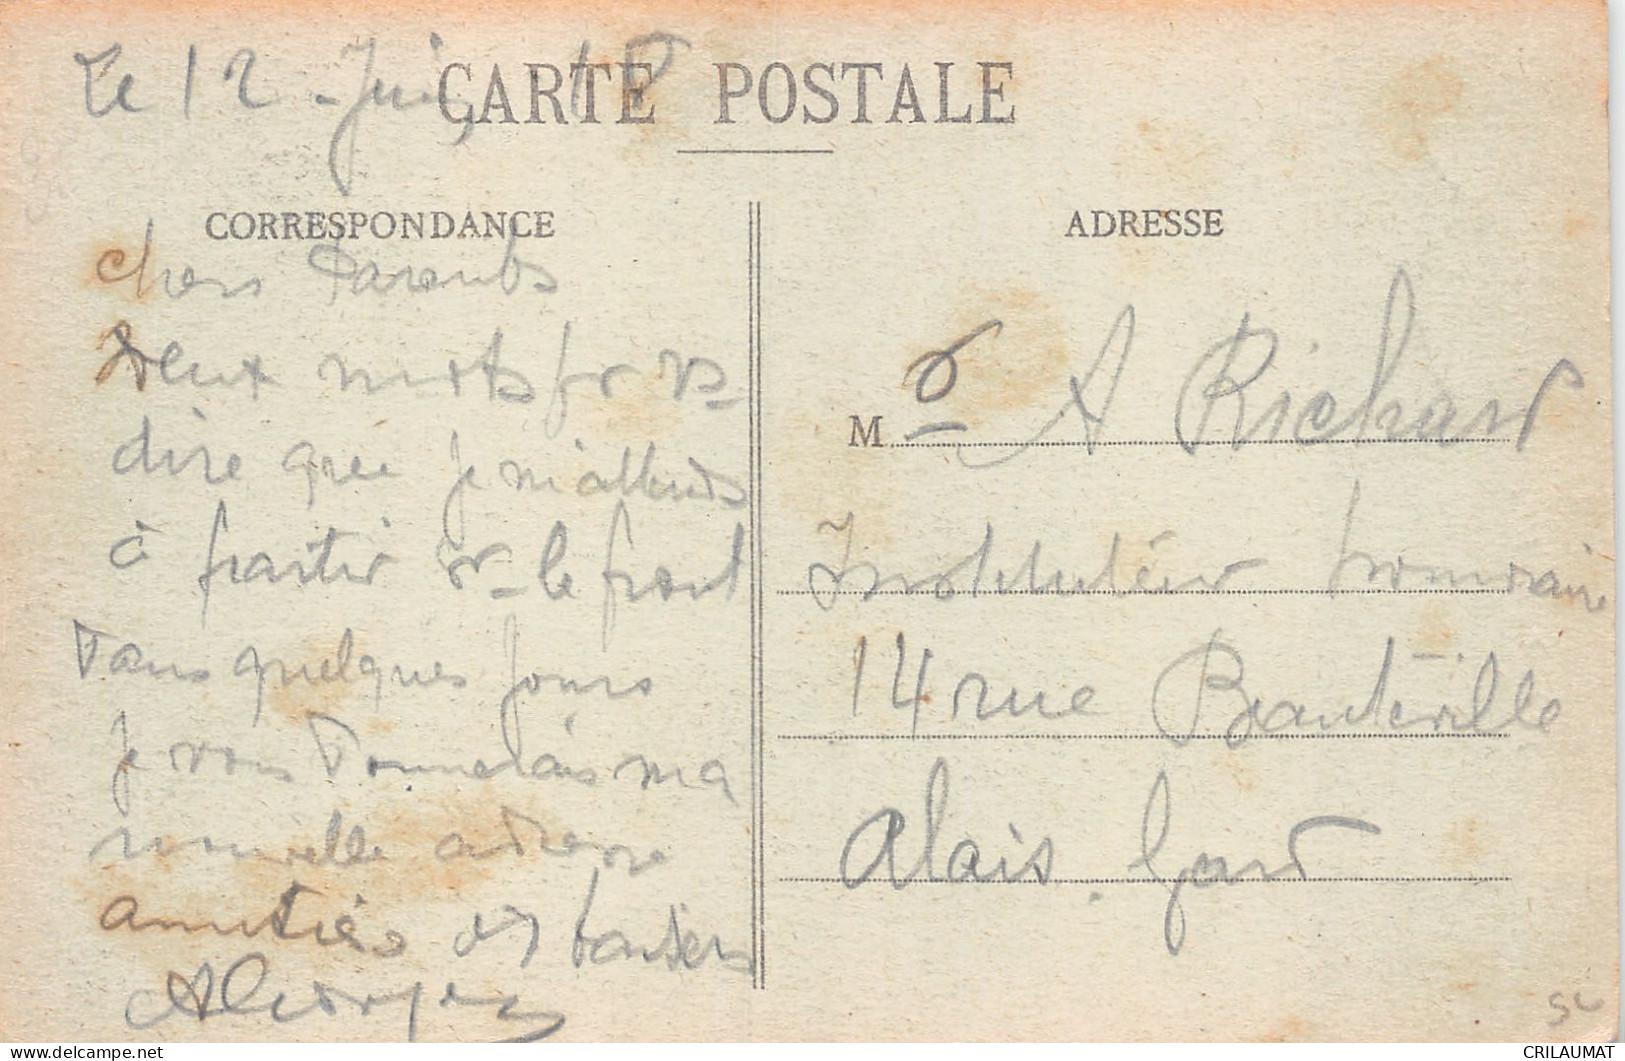 Le 12 - Juin 18
CARTE POSTALE
CORRESPONDANCE
chers Parents
Deux mots pr vs
dire que je m'attends
à partir sr le front
Dans quelques jours
je vous Donnerais ma
nouvelle adresse
amitiés et baisers
ADRESSE
Mr A Richard
Instituteur honoraire
14 rue Beauteville
Alais. Gard
SL
CRILAUMAT